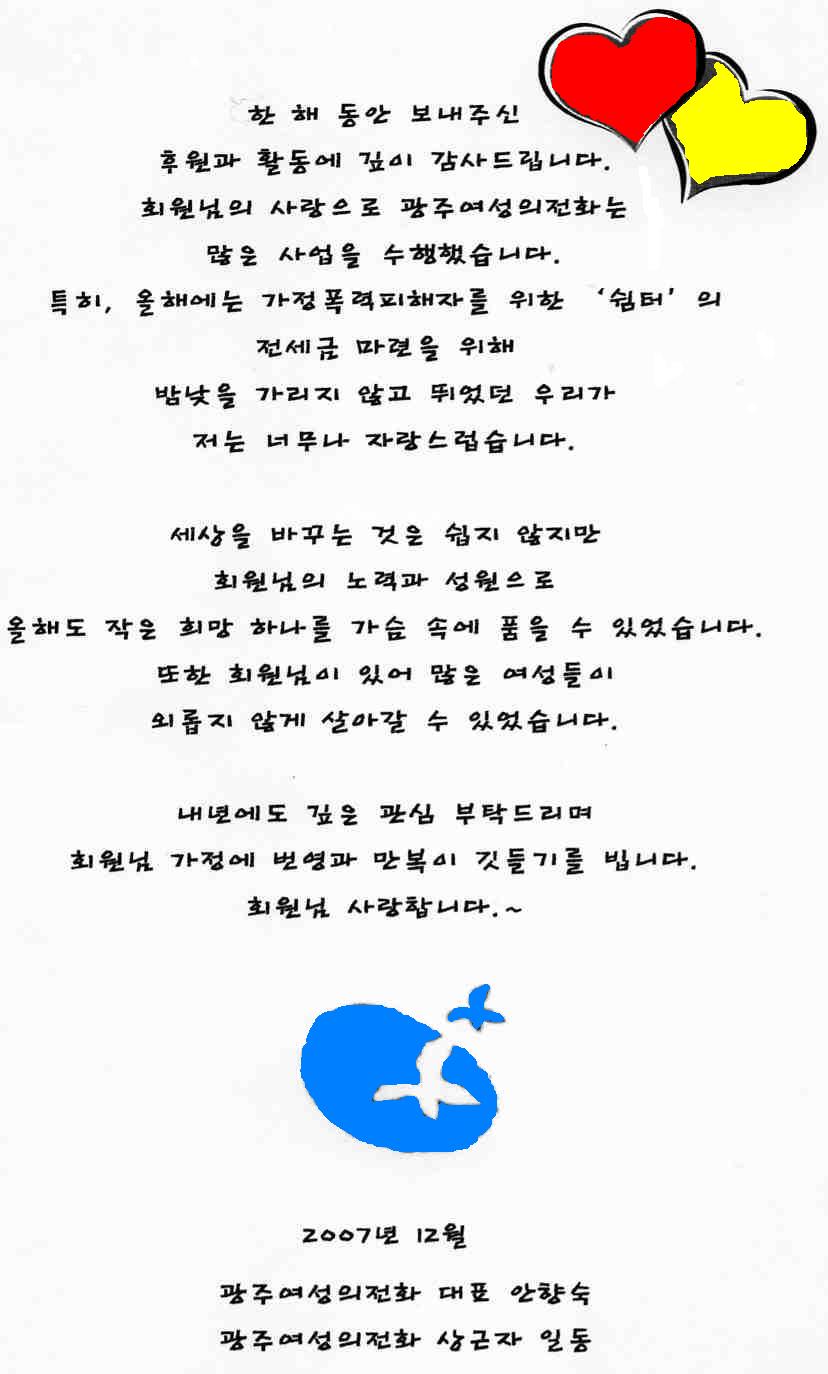 한 해 동안 보내주신
후원과 활동에 깊이 감사드립니다.
회원님의 사랑으로 광주여성의전화는
많은 사업을 수행했습니다.
특히, 올해에는 가정폭력피해자를 위한 ‘쉼터’의
전세금 마련을 위해
밤낮을 가리지 않고 뛰었던 우리가
저는 너무나 자랑스럽습니다.
세상을 바꾸는 것은 쉽지 않지만
회원님의 노력과 성원으로
올해도 작은 희망 하나를 가슴 속에 품을 수 있었습니다.
또한 회원님이 있어 많은 여성들이
외롭지 않게 살아갈 수 있었습니다.
내년에도 깊은 관심 부탁드리며
회원님 가정에 번영과 만복이 깃들기를 빕니다.
회원님 사랑합니다.~
2007년 12월
광주여성의전화 대표 안향숙
광주여성의전화 상근자 일동